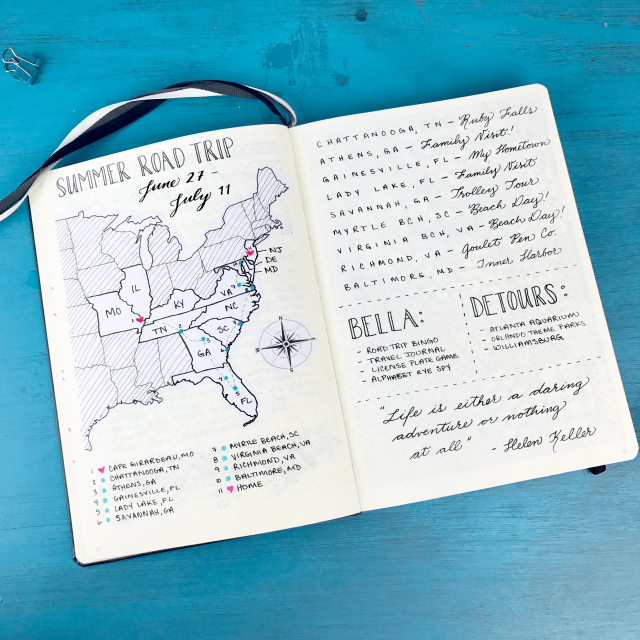 SUMMER ROAD TRIP
June 27 -
July 11
NJ
DE
MD
IL
MO
KY
VA
TN
NC
SC
GA
FL
N
E
S
W
1 CAPE GIRARDEAU, MO
2 CHATTANOOGA, TN
3 ATHENS, GA
4 GAINESVILLE, FL
5 LADY LAKE, FL
6 SAVANNAH, GA
7 MYRTLE BEACH, SC
8 VIRGINIA BEACH, VA
9 RICHMOND, VA
10 BALTIMORE, MD
11 HOME
CHATTANOOGA, TN - Ruby Falls
ATHENS, GA - Family Visit!
GAINESVILLE, FL - My Hometown
LADY LAKE, FL - Family Visit
SAVANNAH, GA - Trolley Tour
MYRTLE BCH, SC - Beach Day!
VIRGINIA BCH, VA - Beach Day!
RICHMOND, VA - Goulet Pen Co.
BALTIMORE, MD - Inner Harbor
BELLA:
- ROAD TRIP BINGO
- TRAVEL JOURNAL
- LICENSE PLATE GAME
- ALPHABET EYE SPY
DETOURS:
- ATLANTA AQUARIUM
- ORLANDO THEME PARKS
- WILLIAMSBURG
"Life is either a daring
adventure or nothing
at all" - Helen Keller